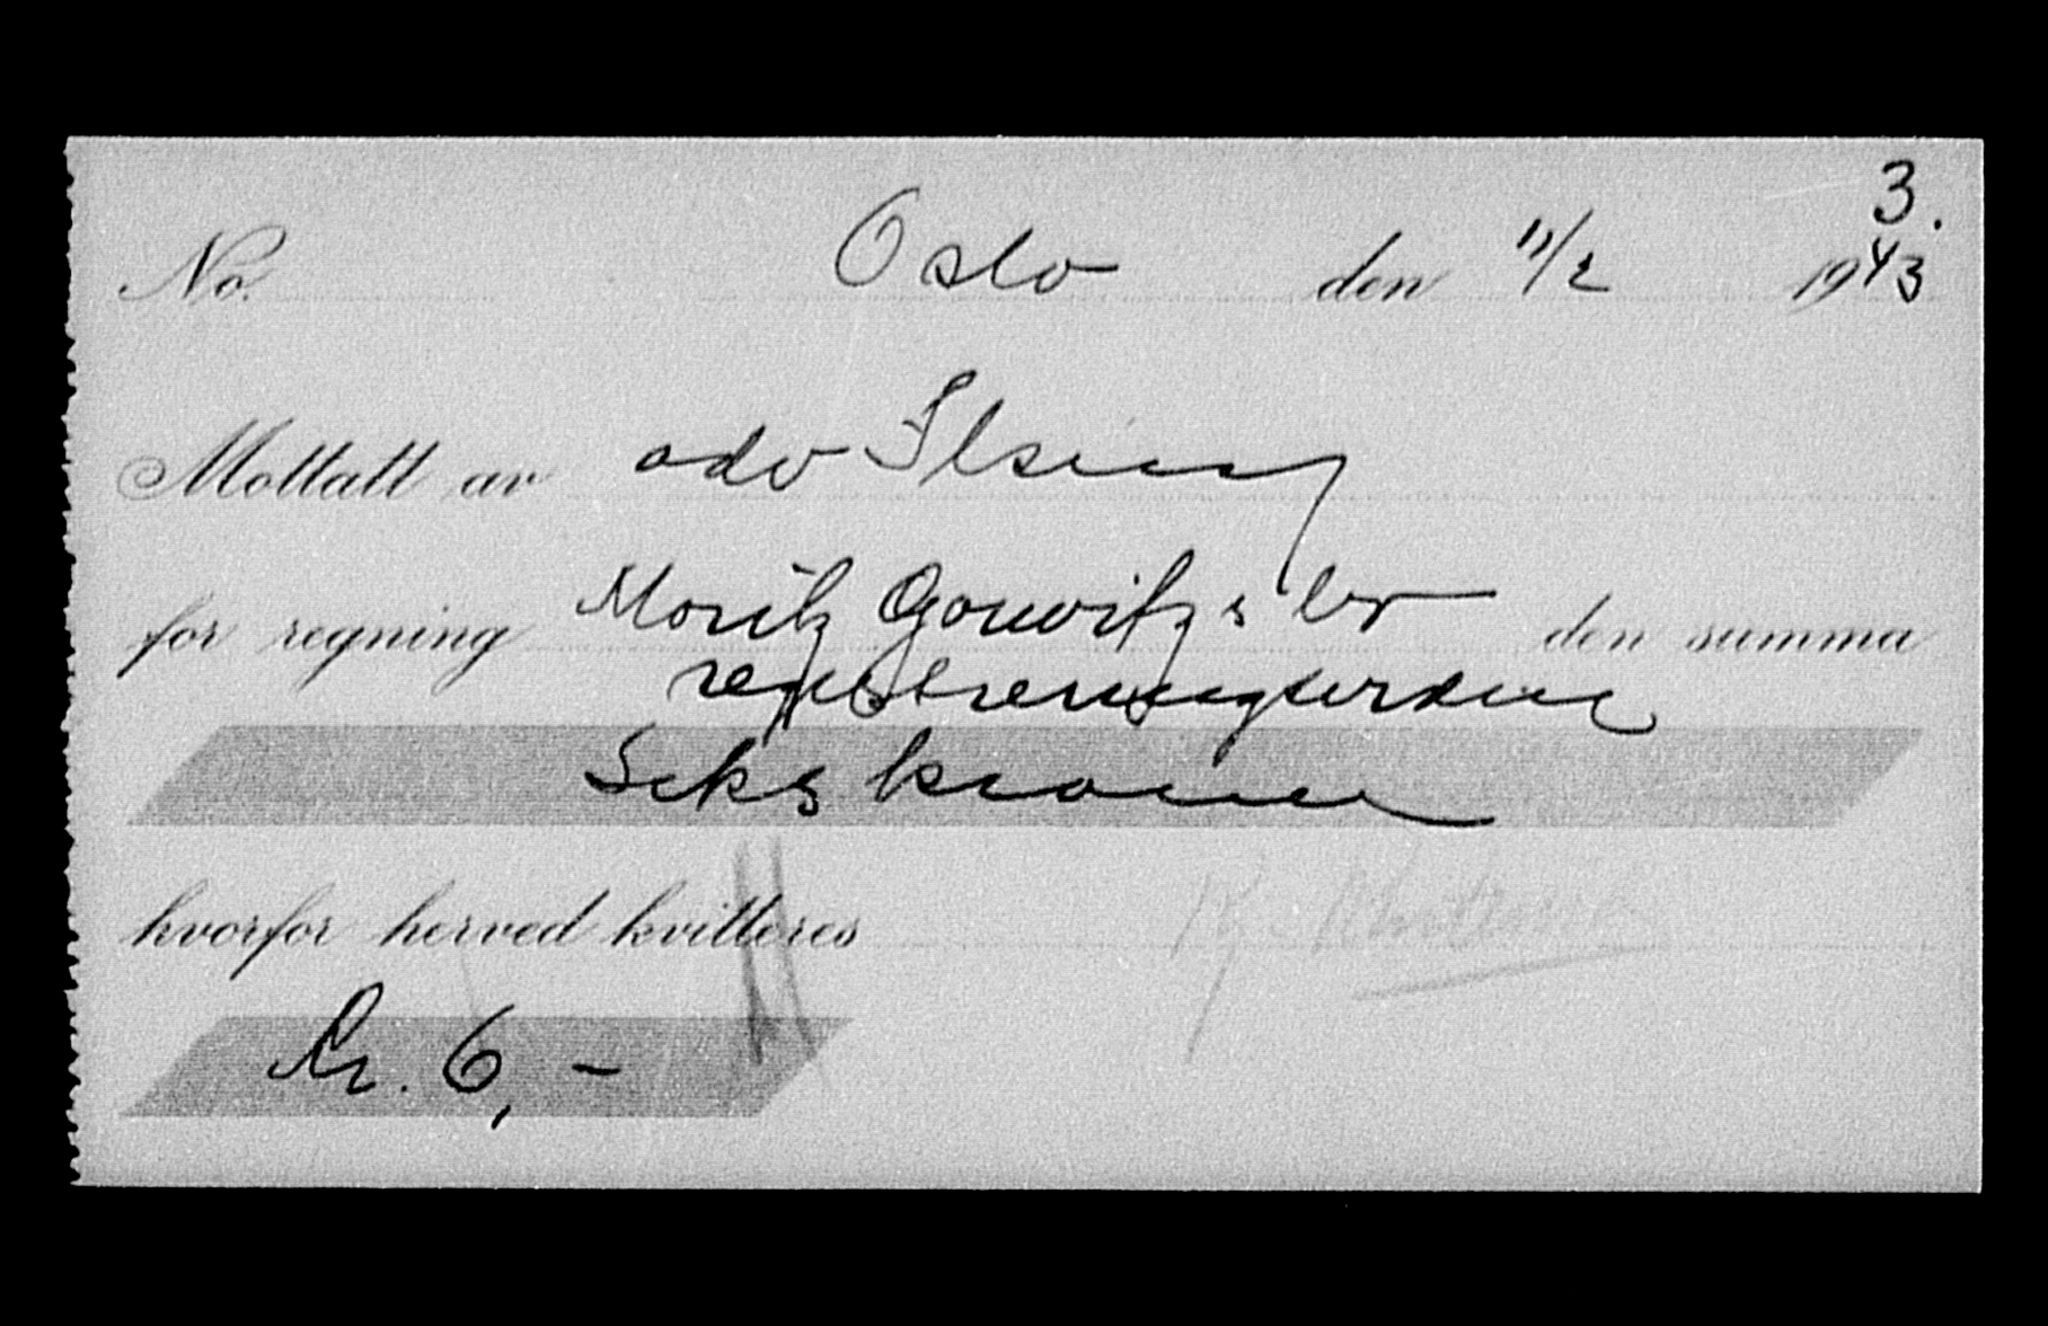 3.
No. Oslo den 11/2 1943
Mottatt av adv
for regning Moritz Gorwitz's bo den summa
registrering
Seks kroner
hvorfor herved kvitteres
kr. 6,-